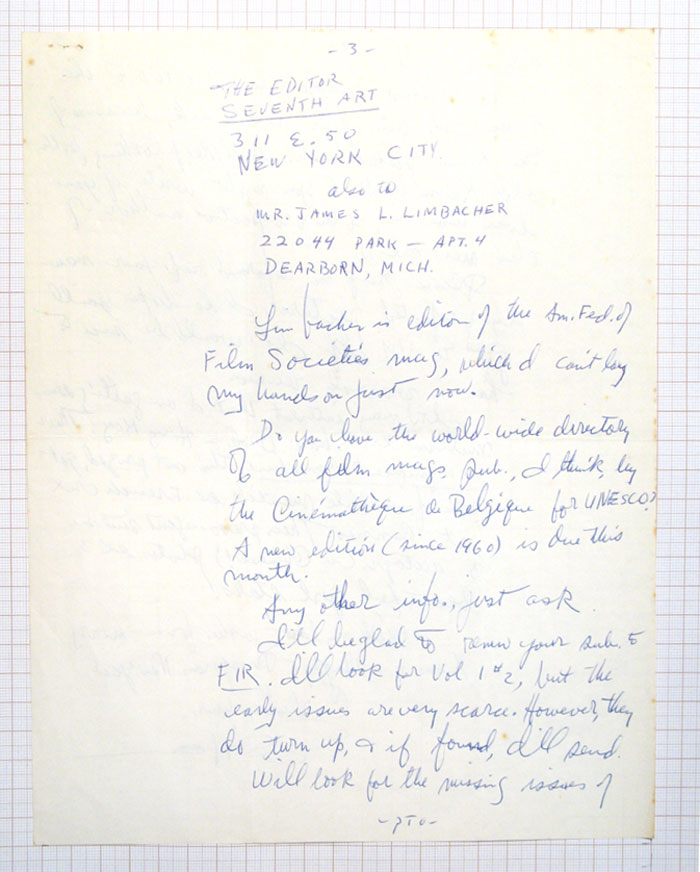 - 3 -
THE EDITOR
SEVENTH ART
311 E. 50
NEW YORK CITY.
also to
MR. JAMES L. LIMBACHER
22044 PARK — APT. 4
DEARBORN, MICH.
Limbacher is editor of the Am. Fed. of
Film Societies mag, which I can't lay
my hands on just now.
Do you have the world-wide directory
of all film mags. pub., I think, by
the Cinémathèque de Belgique for UNESCO?
A new edition (since 1960) is due this
month.
Any other info., just ask.
I'll be glad to renew your sub. to
FIR. I'll look for Vol 1 #2, but the
early issues are very scarce. However, they
do turn up, & if found, I'll send.
Will look for the missing issues of
- PTO -